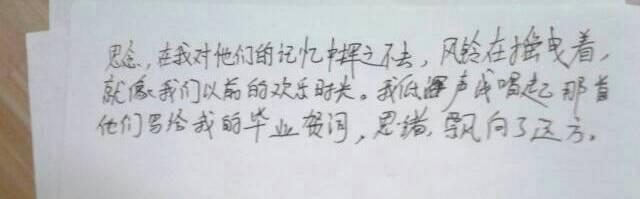 思念，在我对他们的记忆中挥之不去，风铃在摇曳着，
就像我们以前的欢乐时光。我低声哼唱起那首
他们写给我的毕业贺词，思绪，飘向了远方。